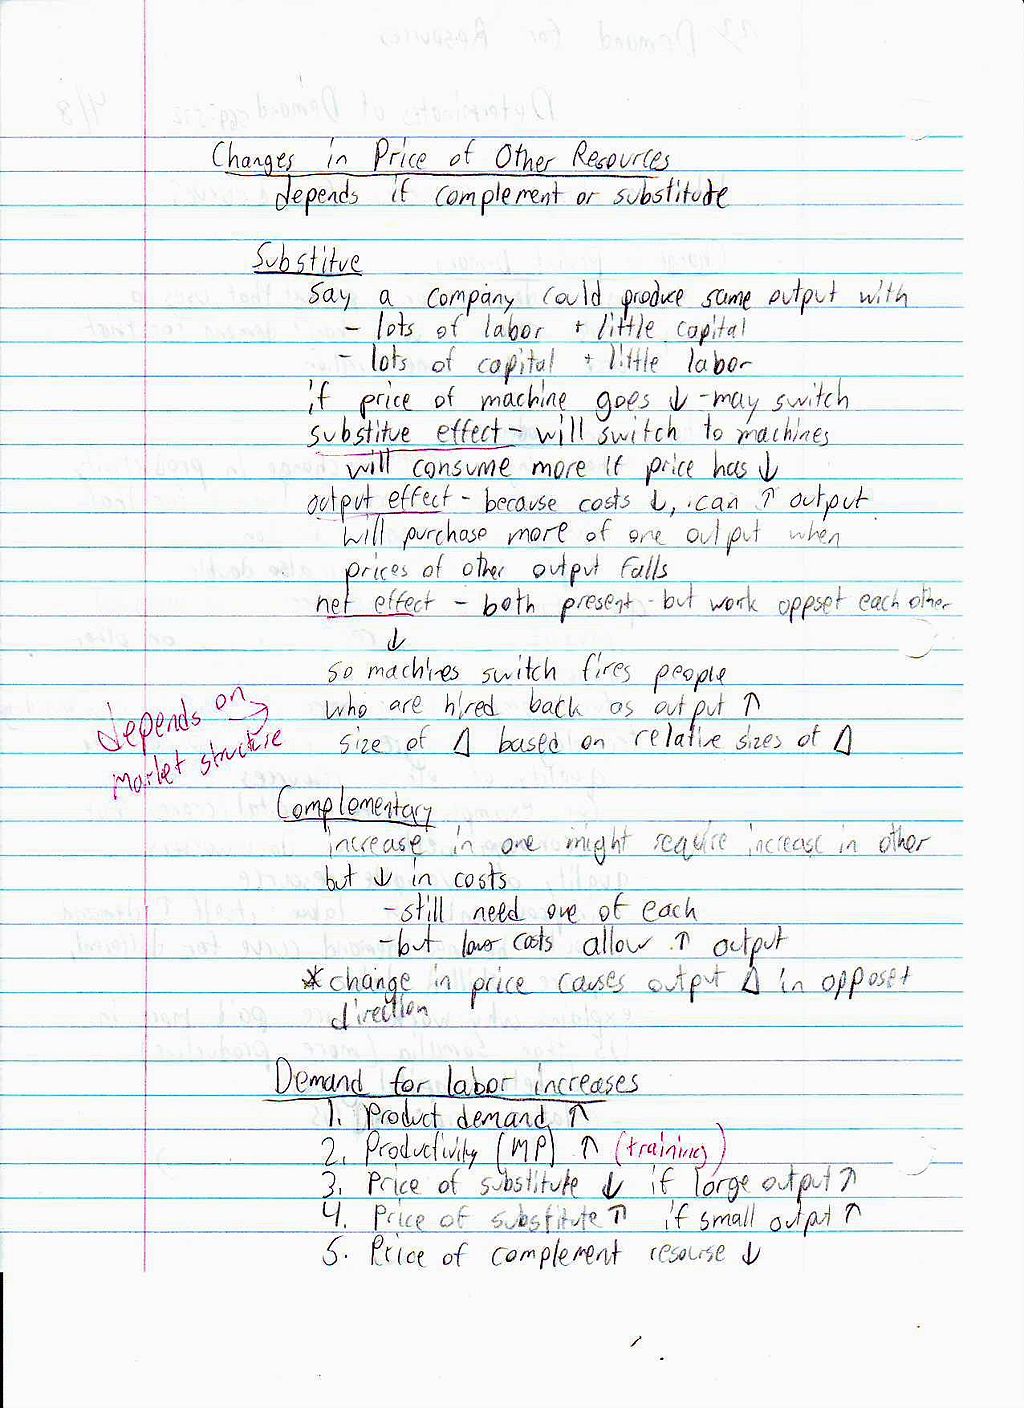 Changes in Price of Other Resources
depends if complement or substitute
Substitue
say a company could produce same output with
- lots of labor + little capital
- lots of capital + little labor
if price of machine goes ↓ - may switch
substitue effect - will switch to machines
will consume more if price has ↓
output effect - because costs ↓, can ↑ output
will purchase more of one output when
prices of other output falls
net effect - both present - but work oppset each other
↓
so machines switch fires people
who are hired back as output ↑
depends on →
market structure
size of Δ based on relative sizes of Δ
Complementary
increase in one might require increase in other
but ↓ in costs
- still need one of each
- but low costs allow ↑ output
* change in price causes output Δ in opposet
direction
Demand for labor increases
1. Product demand ↑
2. Productivity (MP) ↑ (training)
3. Price of substitute ↓ if large output ↑
4. Price of substitute ↑ if small output ↑
5. Price of complement resourse ↓